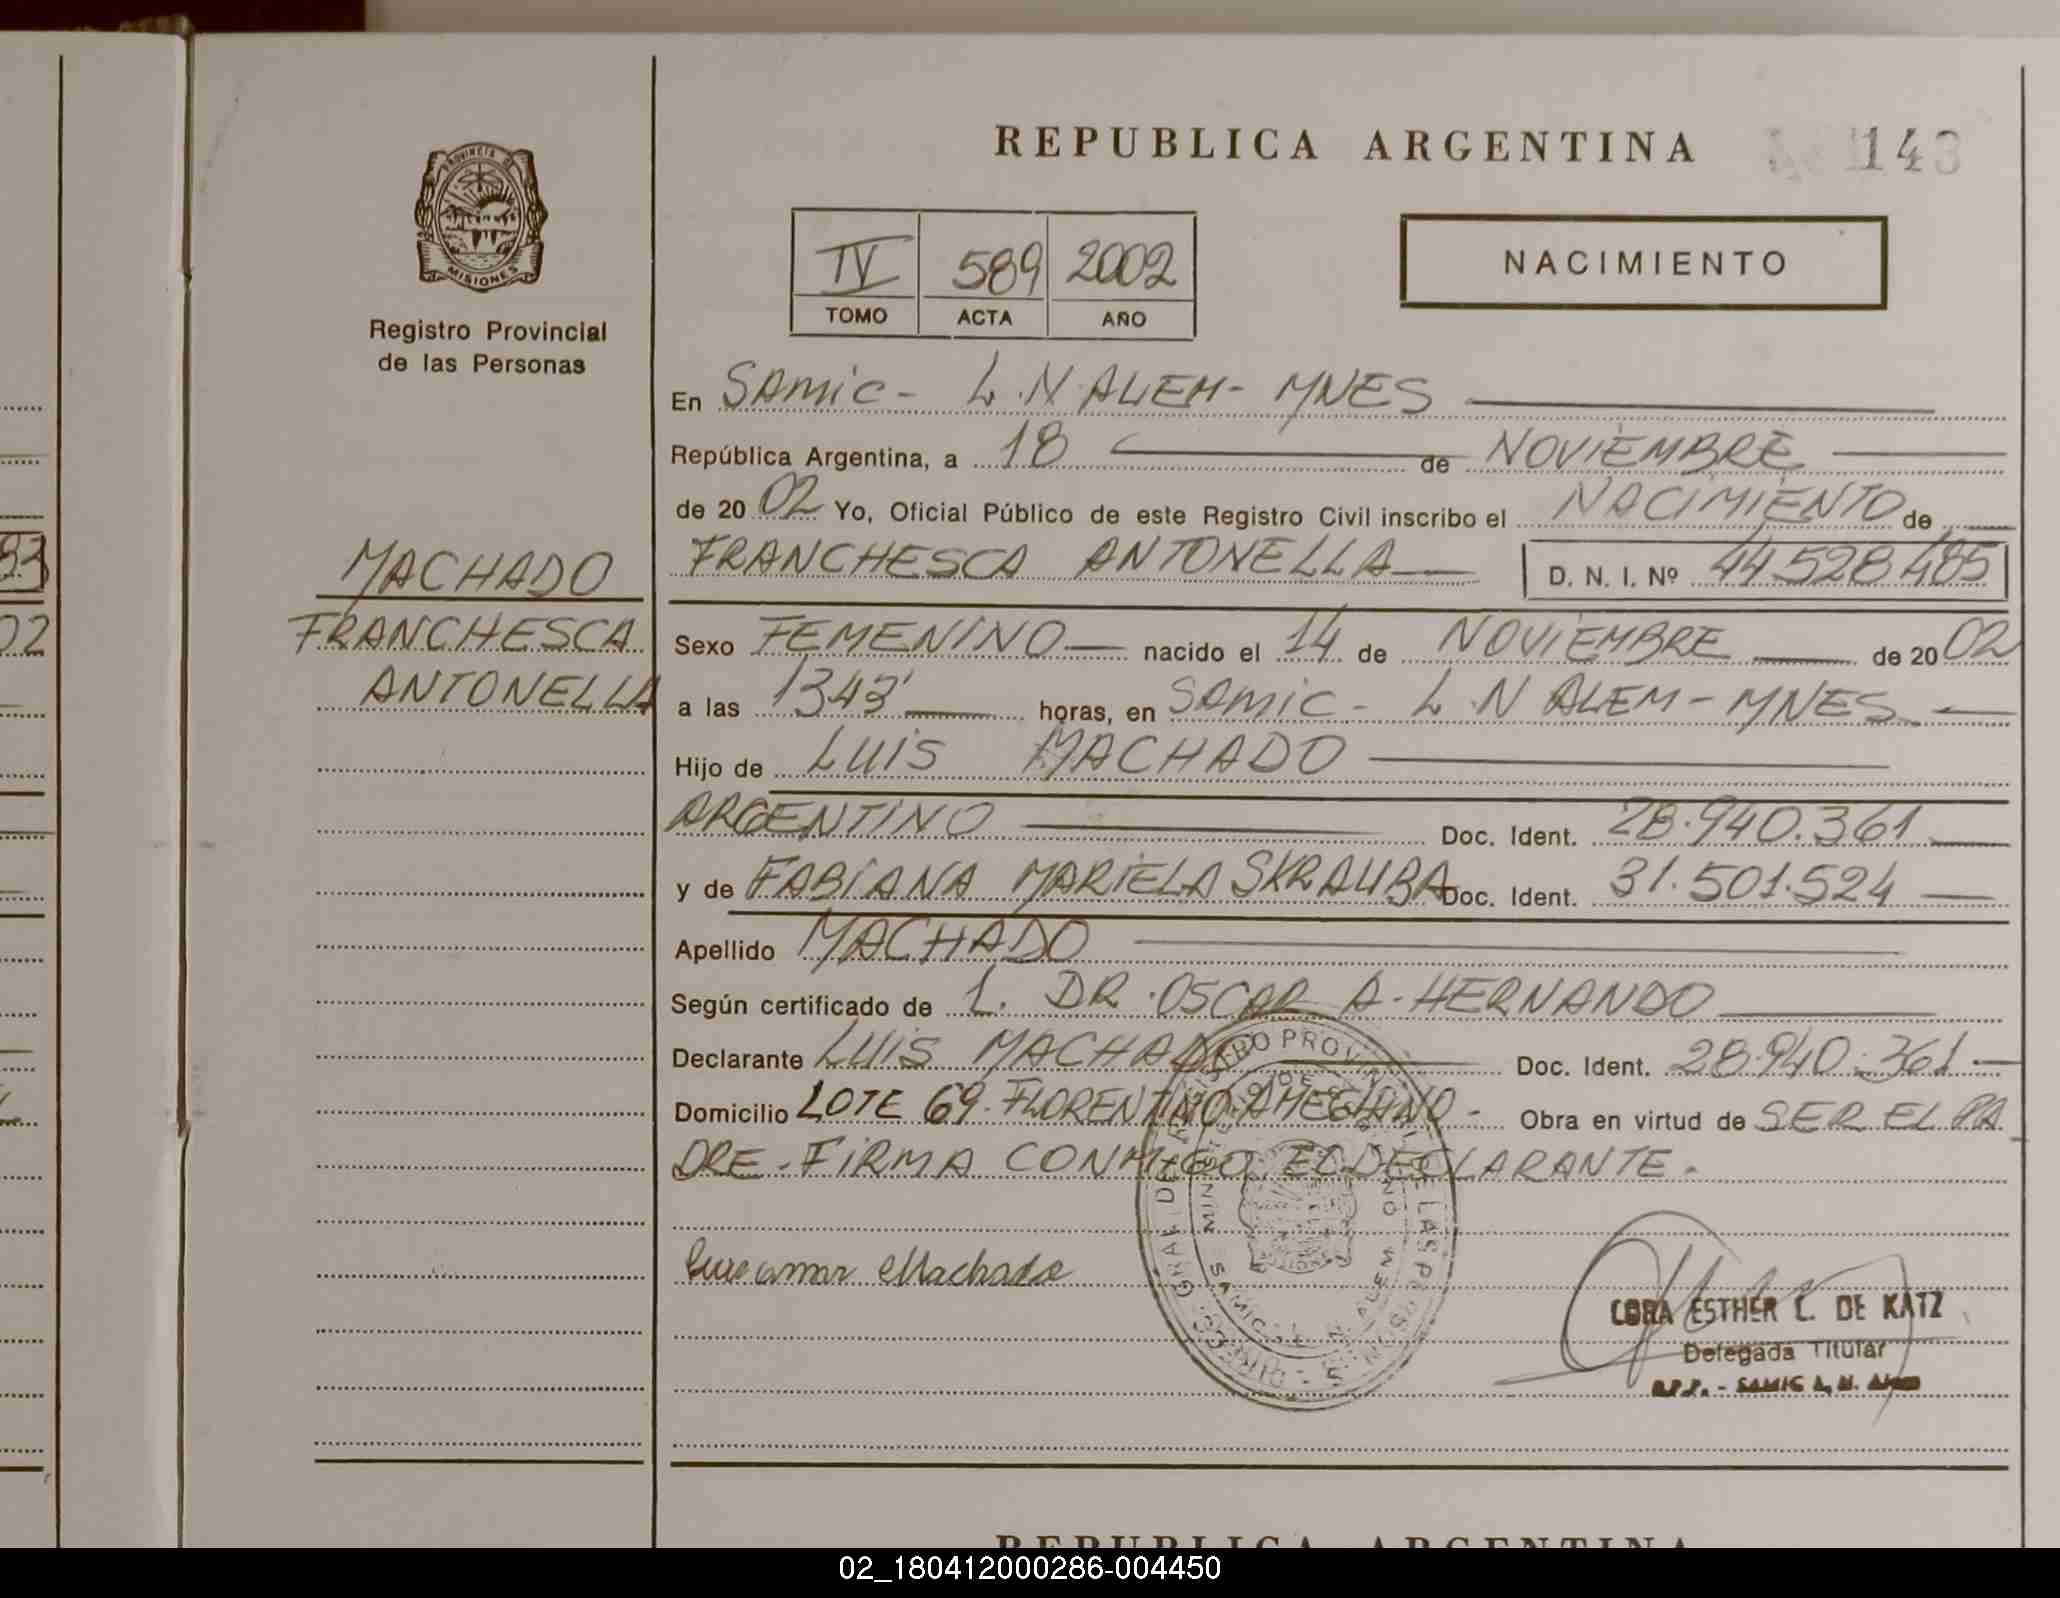 REPUBLICA ARGENTINA 143
PROVINCIA DE MISIONES
Registro Provincial
de las Personas
IV 589 2002
TOMO ACTA AÑO
NACIMIENTO
En SAMIC - L.N. ALEM - MNES
República Argentina, a 18 de NOVIEMBRE
de 2002 Yo, Oficial Público de este Registro Civil inscribo el NACIMIENTO de
FRANCHESCA ANTONELLA D. N. I. Nº 44.528.485
MACHADO
FRANCHESCA
ANTONELLA
Sexo FEMENINO nacido el 14 de NOVIEMBRE de 2002
a las 1343' horas, en SAMIC - L.N ALEM - MNES
Hijo de LUIS MACHADO
ARGENTINO Doc. Ident. 28.940.361
y de FABIANA MARIELA SKRAUBA Doc. Ident. 31.501.524
Apellido MACHADO
Según certificado de 1. DR. OSCAR A. HERNANDO
Declarante LUIS MACHADO Doc. Ident. 28.940.361
Domicilio LOTE 69. FLORENTINO AMEGHINO - Obra en virtud de SER EL PA
DRE. FIRMA CONMIGO EL DECLARANTE.
Machado
CORA ESTHER L. DE KATZ
Delegada Titular
R.P.P. - SAMIC L. N. Alem
REPUBLICA ARGENTINA
02_180412000286-004450